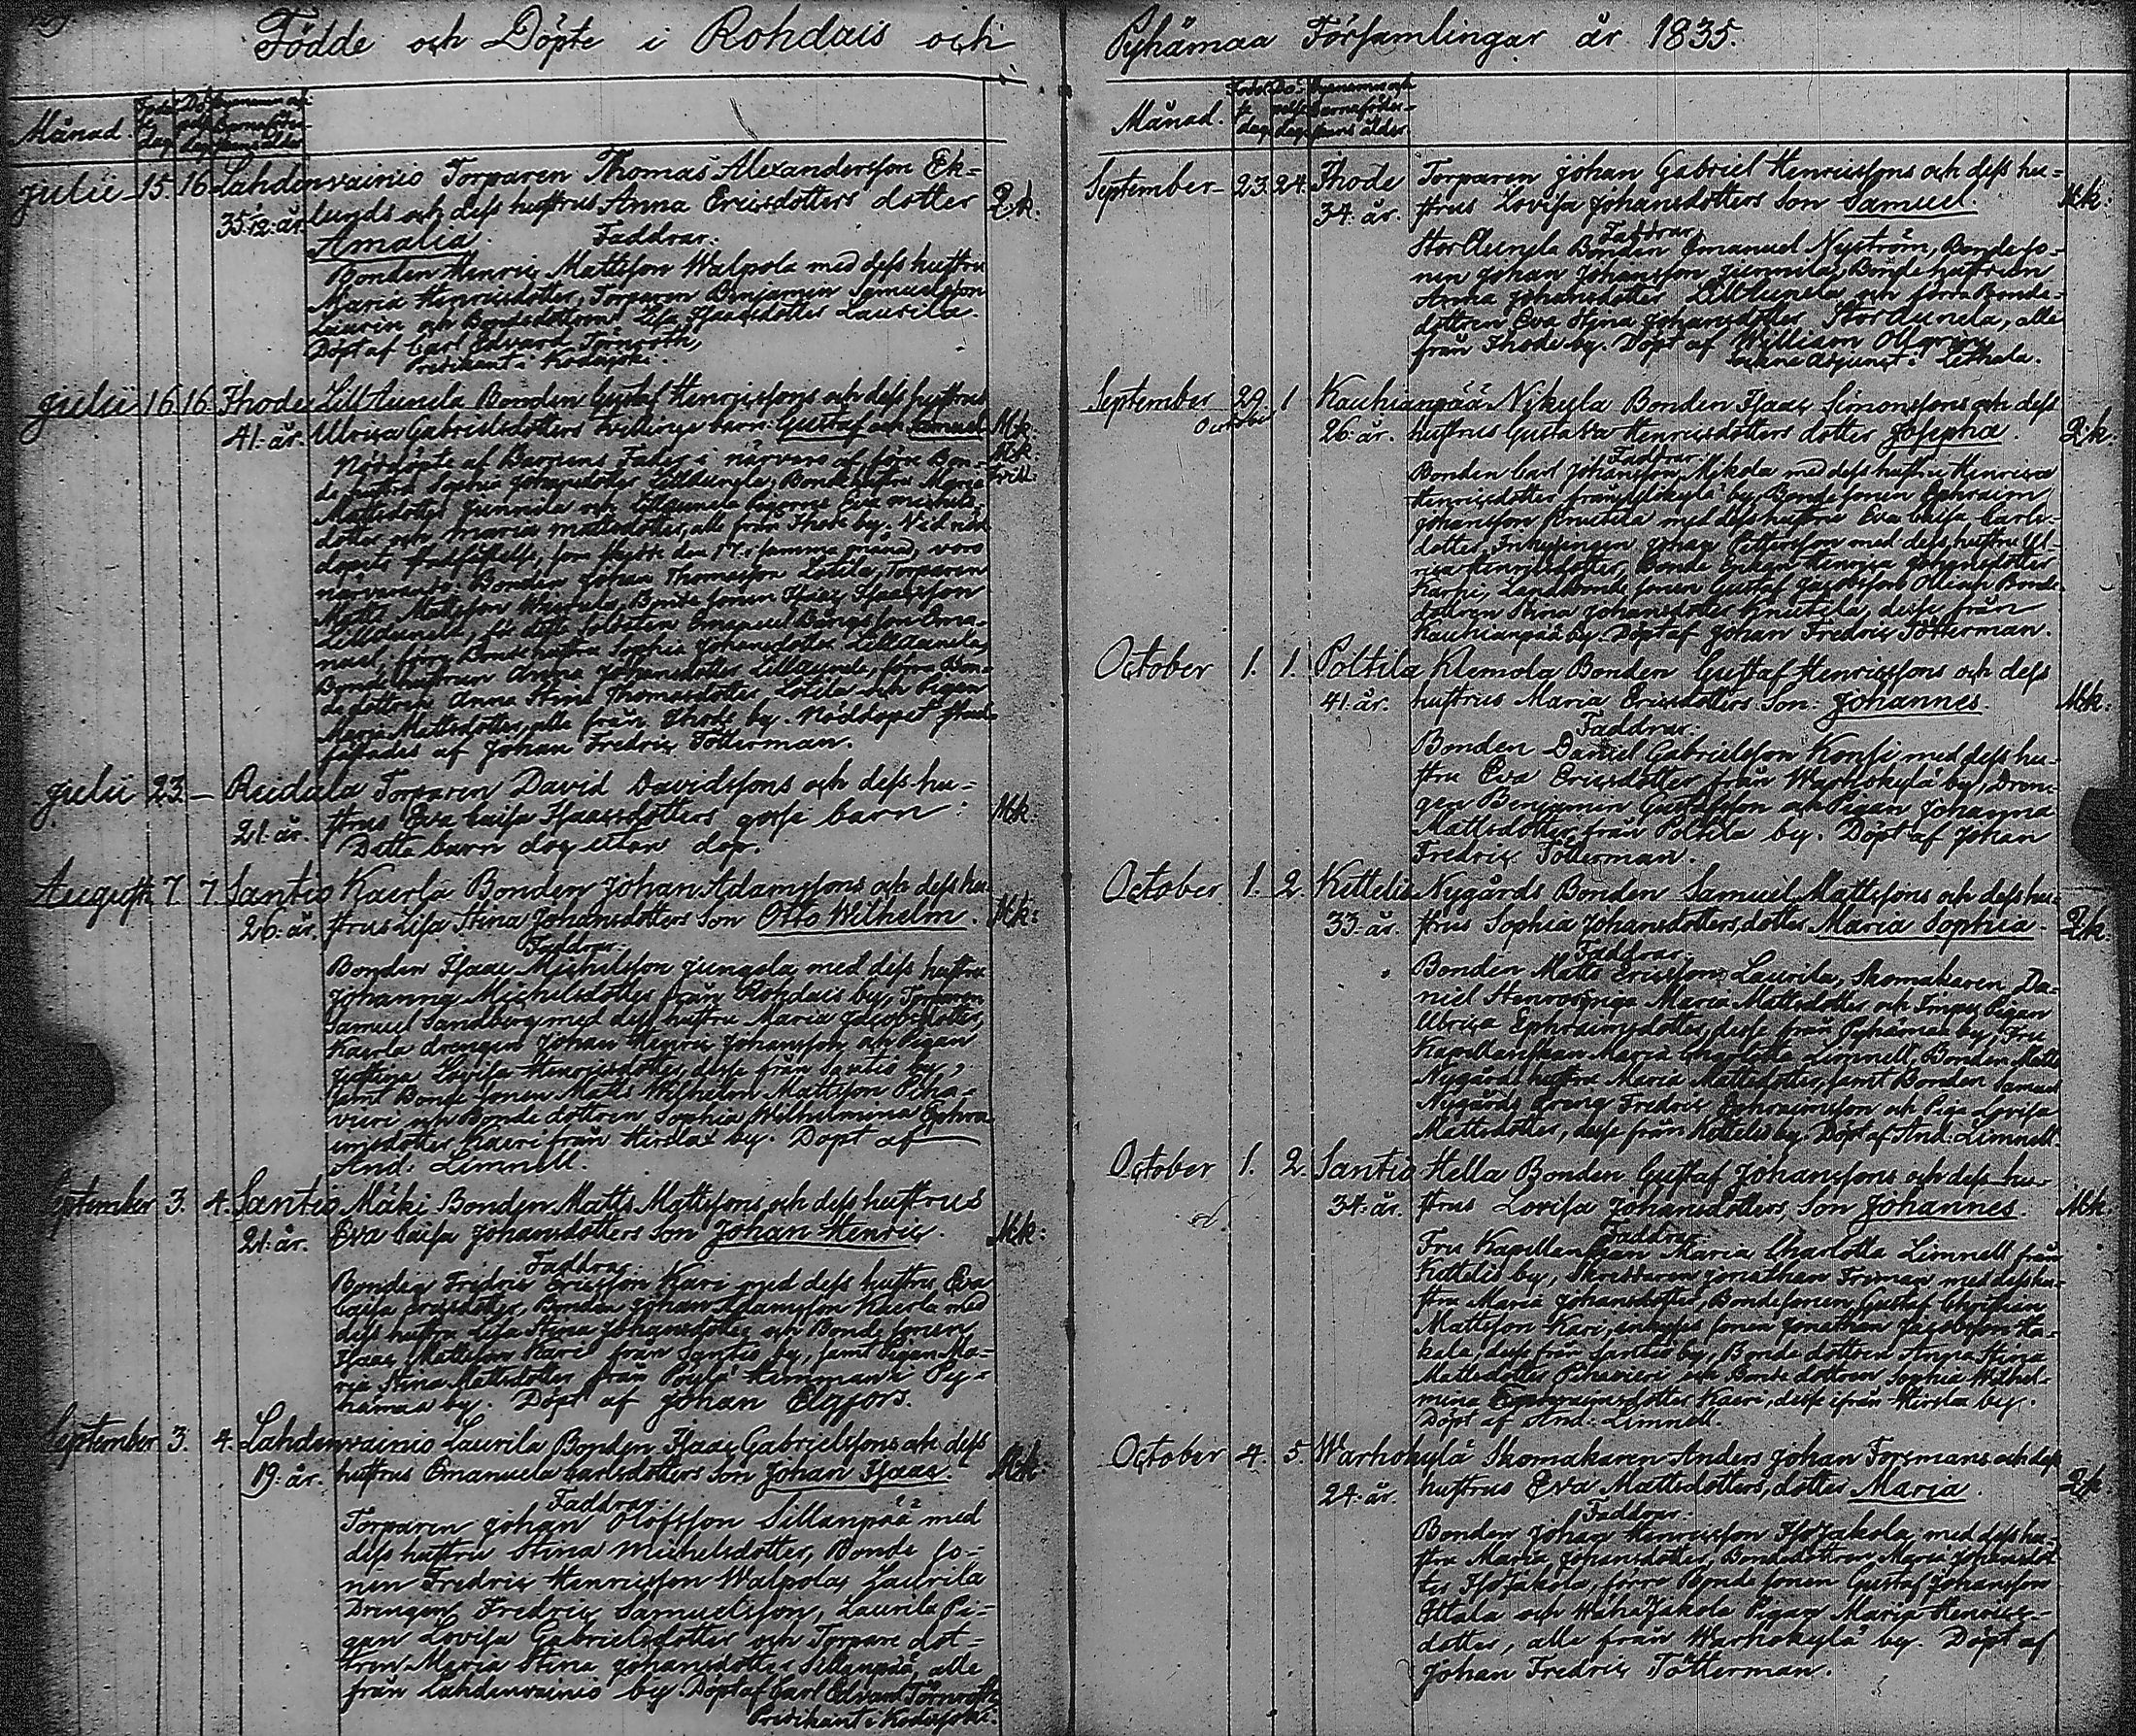 Födde och Döpte i Rohdais och
Månad
julii 15. 16 Lahdenvainio Torparen Thomas Alexandersson Ek=
35 1/2 år. lunds och dess hustrus Anna Ericsdotters dotter Qk:
Amalia. Faddrar:
Bonden Henric Mattsson Walpola med dess hustru
Maria Henricsdotter, Torparen Benjamin Samuelsson
Laurin och Bondedottren Lisa Isaacsdotter Laurila.
Döpt af Carl Edvard Törnroth,
Predikant i Kodisjoki.
julii 16 16 Ihode LillAunela Bonden Gustaf Henricssons och dess hustrus
41. år. Ulrica Gabrielsdotters tvillinge barn Gustaf och Samuel Mk:
Nöddöpte af Barnens Fader i närvaro af förre Bon= Mk:
de hustrun Sophia Johansdotter LillAunela, Bondehustru Maria
Mattsdotter Junnila och LillAunela Pigorne Eva Michels
dotter och Maria Mattsdotter, alla från Ihode by. Vid nöd
dopets stadfästelse, som skjedde den 17. i samma månad, voro
närvarande: Bonden Johan Thomasson Lotila, Torparen
Matts Mattsson, Bonde sonen Isaac Isaacsson
LillAunela, Ema=
nuel, förre Bondehustru Sophia Johansdotter LillAunela,
Bondehustrun Anna Johansdotter LillAunela, förre Bon=
de dottren Anna Stina Thomasdotter Lotila och Pigan
Maria Mattsdotter, alla från Ihode by. Nöddopet stad=
fästades af Johan Fredric Tötterman.
julii 23. — Reidila Torparen David Davidssons och dess hu=
21. år. strus Eva Caisa Isaacsdotters gosse barn Mk:
Detta barn dog utan dop.
Augusti 7 7. Santio Kaerla Bonden Johan Adamssons och dess hu=
26. år. strus Lisa Stina Johansdotters Son Otto Wilhelm. Mk:
Faddrar:
Bonden Isaac Michelsson Jungola med dess hustru
Johanna Michelsdotter från Rohdais by, Torparen
Samuel Sandberg med dess hustru Maria Jacobsdotter,
Kaerla drengen Johan Henric Johansson och Pigan
Justina Lovisa Henricsdotter, desse från Santio by,
samt Bonde sonen Matts Wilhelm Mattsson Piha=
vieri och Bonde dottren Sophia Wilhelmina Ephra=
imsdotter Kaeri från Hirslax by. Döpt af
And: Limnell.
September 3. 4. Santio Mäki Bonden Matts Mattssons och dess hustrus
21. år. Eva Caisa Johansdotters Son Johan Henric. Mk:
Faddrar:
Bonden Fredric Ericsson Kari med dess hustru Eva
Caisa Ericsdotter, Bonden Johan Adamsson Kaerla med
dess hustru Lisa Stina Johansdotter och Bonde sonen
Isaac Mattsson Kari från Santio by, samt Pigan Ma=
ria Stina Mattsdotter från Pöylä hemman i Py=
hämaa by. Döpt af Johan Elgfors.
September 3. 4. Lahdenvainio Laurila Bonden Isaac Gabrielssons och dess
19. år. hustrus Emanuela Carlsdotters Son Johan Isaac. Mk:
Faddrar:
Torparen Johan Olofsson Sillanpää med
dess hustru Stina Michelsdotter, Bonde so=
nen Fredric Henricsson Walpola, Laurila
Drengen Fredric Samuelsson, Laurila Pi=
gan Lovisa Gabrielsdotter och Torpare dot=
tren Maria Stina Johansdotter Sillanpää, alle
från Lahdenvainio by. Döpt af Carl Edvard Törnroth,
Predikant i Kodisjoki.
Pyhämaa Församlingar år 1835.
Månad.
September 23. 24. Ihode Torparen Johan Gabriel Henricssons och dess hu=
34. år. strus Lovisa Johansdotters Son Samuel. Mk:
Faddrar:
StorAunela Bonden Emanuel Nyström, Bondeso=
nen Johan Johansson Junnila, Bondehustrun
Anna Johansdotter LillAunela och förra Bonde=
dottren Eva Stina Johansdotter StorAunela, alle
från Ihode by. Döpt af William Ollgren,
Sockne Adjunct i Lethala.
September 29. 1 Kauhianpää Nykyla Bonden Isaac Simonssons och dess
October
26. år. hustrus Gustava Henricsdotters dotter Josepha. Qk:
Faddrar:
Bonden Carl Johansson Mikola med dess hustru Henrica
Henricsdotter från by, Bondesonen Ephraim
Johansson Knutila med dess hustru Eva Caisa Carls=
dotter, Inhysingen Johan Pettersson med dess hustru Ul=
rica Henricsdotter, Bonde Enkan Henrica Johansdotter
Karhi, Landbonde sonen Gustaf Jacobsson Olli och Bonde
dottren Stina Johansdotter Knutila, desse från
Kauhianpää by. Döpt af Johan Fredric Tötterman.
October 1. 1. Poltila Klemola Bonden Gustaf Henricssons och dess
41. år. hustrus Maria Ericsdotters Son: Johannes. Mk:
Faddrar:
Bonden Daniel Gabrielsson Konsi med dess hu=
stru Eva Ericsdotter från Warhokylä by, Dren=
gen Benjamin Gustafsson och Pigan Johanna
Mattsdotter från Poltila by. Döpt af Johan
Fredric Tötterman.
October 1. 2. Kettelis Nygårds Bonden Samuel Mattssons och dess hu=
33. år. strus Sophia Johansdotters, dotter Maria Sophia. Qk:
Faddrar:
Bonden Matts Ericsson Laurila, Skomakaren Da=
niel Stenroos, Maria Mattsdotter och Pigan
Ulrica Ephraimsdotter, desse från Pyhämaa by, Fru
Kapellanskan Maria Charlotta Limnell, Bonden Matts
Nygårds hustru Maria Mattsdotter, samt Bonden Samuel
Nygårds dreng Fredric Ephraimsson och Piga Lovisa
Mattsdotter, desse från Kettelis by. Döpt af And: Limnell.
October 1. 2. Santio Hella Bonden Gustaf Johanssons och dess hu=
34. år. strus Lovisa Johansdotters, Son Johannes. Mk:
Faddrar:
Fru Kapellanskan Maria Charlotta Limnell från
Kettelis by, Skreddaren Jonathan Friman med dess hu=
stru Maria Johansdotter, Bondesonen Gustaf Christian
Mattsson Kari, sonen Jonathan Jacobsson Ha=
kala, desse från Santio by, Bonde dottren Anna Stina
Mattsdotter Pihavieri och Bonde dottren Sophia Wilhel=
mina Ephraimsdotter Kaeri, desse ifrån Hirslax by.
Döpt af And: Limnell.
October 4. 5. Warhokylä Skomakaren Anders Johan Forsmans och dess
24. år. hustrus Eva Mattsdotters, dotter Maria. Qk
Faddrar:
Bonden Johan Henricsson IsoJakola med dess hu=
stru Maria Johansdotter, Bondedottren Maria Johansdot
ter IsoJakola, förre Bonde sonen Gustaf Johansson
Ittala och WähäJakola Pigan Maria Henrics=
dotter, alle från Warhokylä by. Döpt af
Johan Fredric Tötterman.